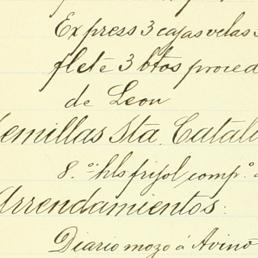 Express 3 cajas velas 3
flete 3 btos proced
de Leon
Semillas Sta. Catali
8.º hls frijol comp.º a
Arrendamientos:
Diario mozo á Avino